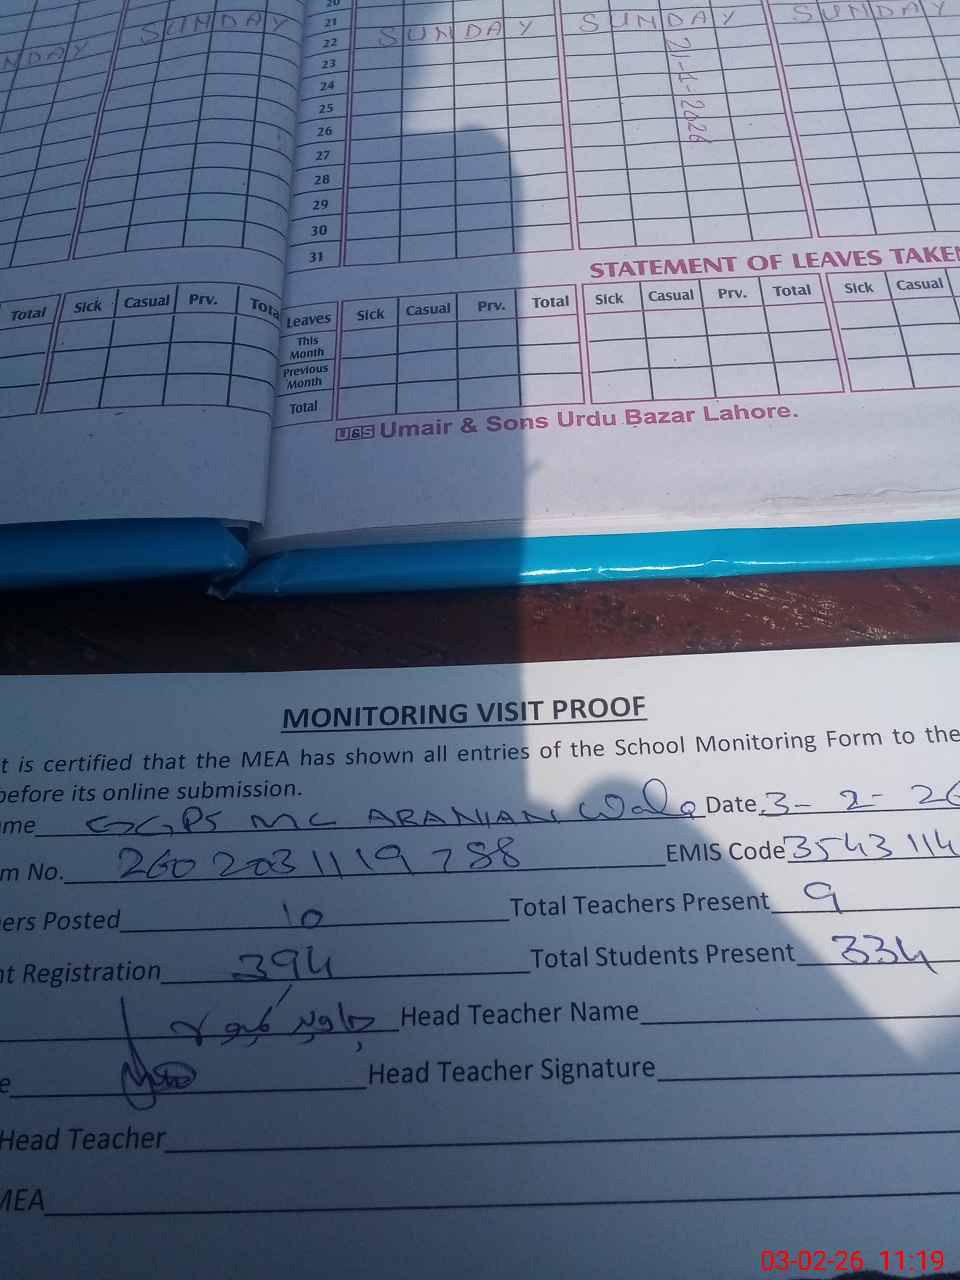 20
SUNDAY
21
SUNDAY SUNDAY SUNDAY
NDAY
22
23
24
25
26
21-1-2026
27
28
29
30
31
STATEMENT OF LEAVES TAKEN
Total Sick Casual Prv. Tota
Leaves Sick Casual Prv. Total Sick Casual Prv. Total Sick Casual
This Month
Previous Month
Total
U&S Umair & Sons Urdu Bazar Lahore.
MONITORING VISIT PROOF
t is certified that the MEA has shown all entries of the School Monitoring Form to the
before its online submission.
me GGPS MC ARANIAN Wala Date 3-2-26
m No. 2602031119788 EMIS Code 3543114
ers Posted 10 Total Teachers Present 9
nt Registration 394 Total Students Present 334
Head Teacher Name
e Head Teacher Signature
Head Teacher
MEA
03-02-26 11:19